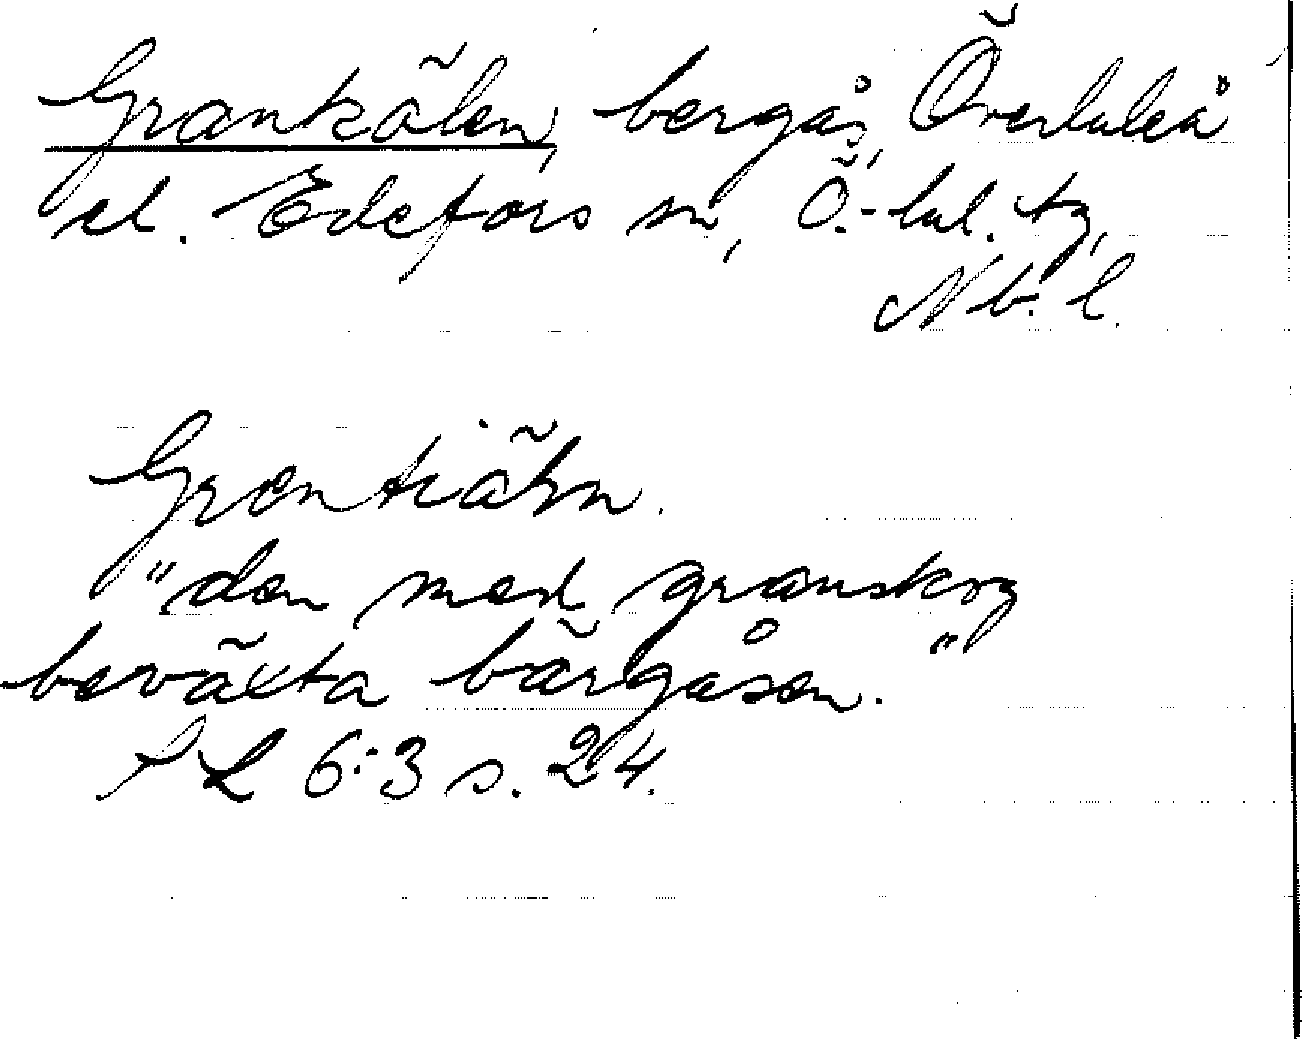 Grankölen, bergås, Överluleå
el. Edefors sn, Ö.-lul. tg,
Nb. l.
"den med granskog
beväxta bärgåsen."
SL 6:3 s. 24.